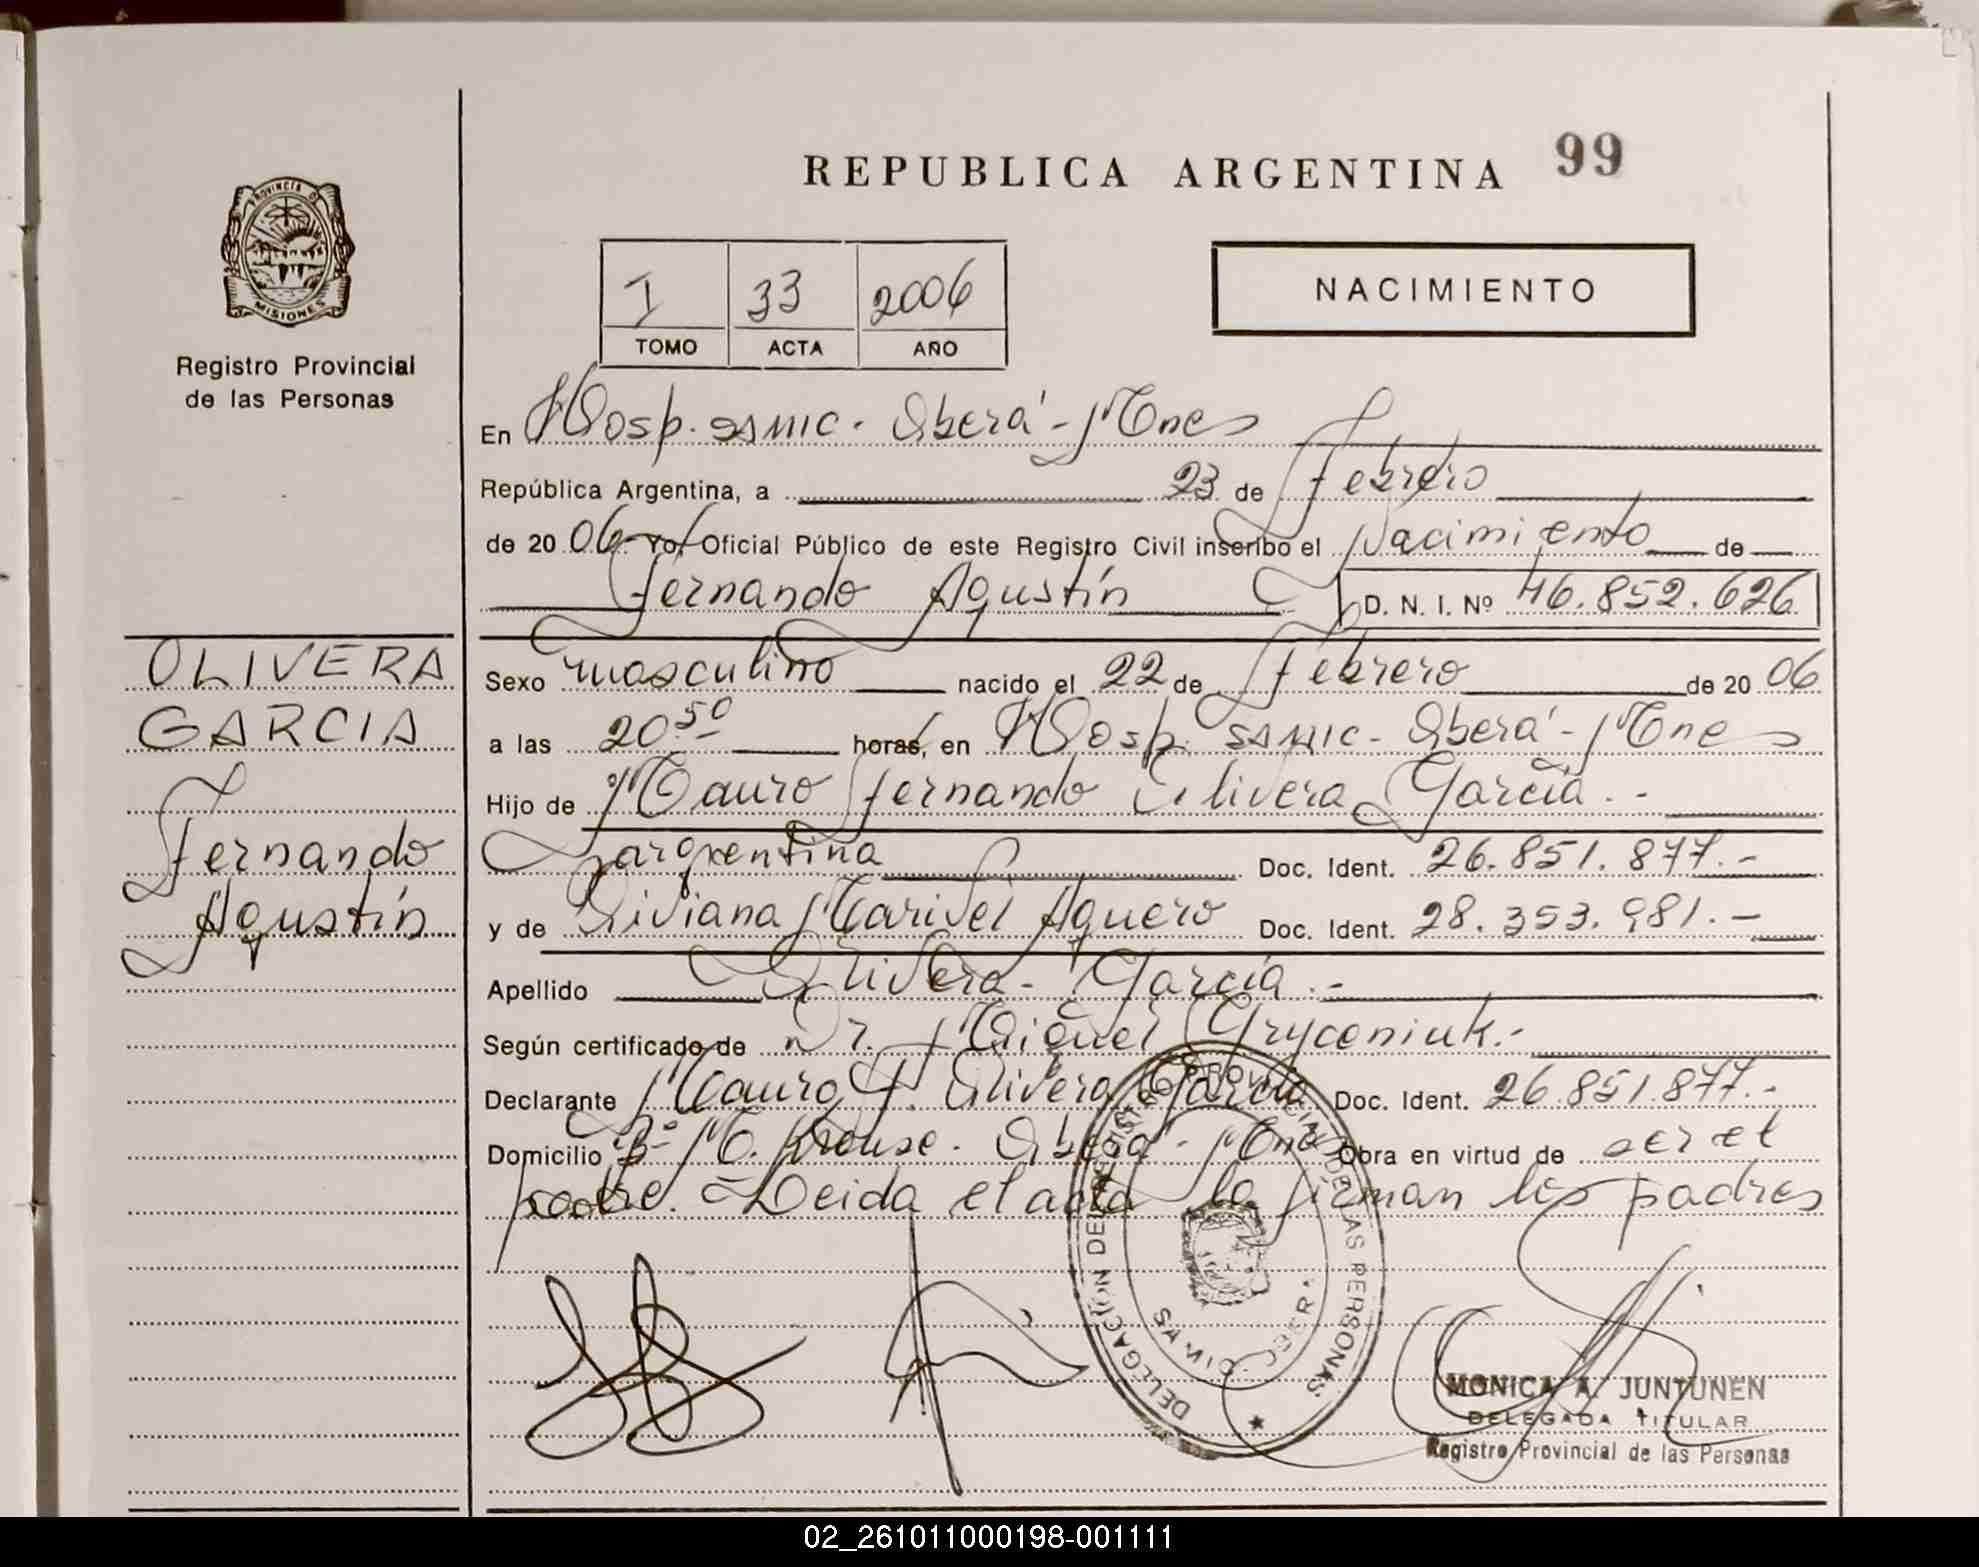 REPUBLICA ARGENTINA 99
PROVINCIA DE
MISIONES
Registro Provincial
de las Personas
I 33 2006
TOMO ACTA AÑO
NACIMIENTO
En Hosp. SAMIC. Oberá - Mnes
República Argentina, a 23 de Febrero
de 20 06 Yo, Oficial Público de este Registro Civil inscribo el Nacimiento de
Fernando Agustín D. N. I. Nº 46.852.626
OLIVERA
GARCIA
Fernando
Agustín
Sexo masculino nacido el 22 de Febrero de 20 06
a las 20 50 horas, en Hosp. SAMIC - Oberá - Mnes
Hijo de Mauro Fernando Olivera García . -
argentina Doc. Ident. 26.851.877. -
y de Viviana Marisel Aguero Doc. Ident. 28.353.981. -
Apellido Olivera - García . -
Según certificado de Dr. Miguel Gryceniuk. -
Declarante Mauro F. Olivera García Doc. Ident. 26.851.877. -
Domicilio Bº M. Krause. Oberá - Mnes Obra en virtud de ser el
padre. Leida el acta la firman los padres
DELEGACIÓN DEL REGISTRO PROVINCIAL DE LAS PERSONAS
MONICA A. JUNTUNEN
DELEGADA TITULAR
Registro Provincial de las Personas
02_261011000198-001111